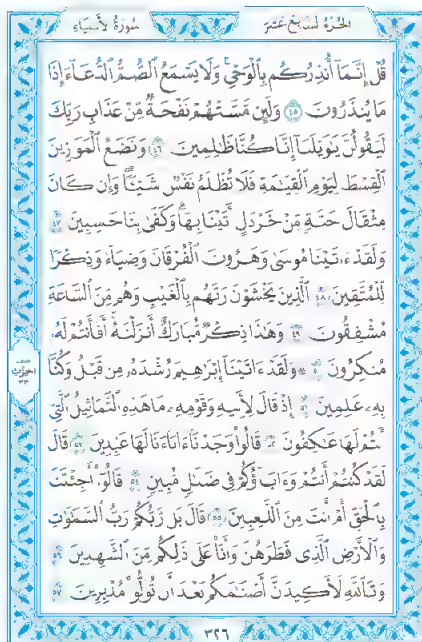 الجزء السابع عشر
سورة الأنبياء
قُلْ إِنَّمَا أُنذِرُكُم بِالْوَحْيِ وَلَا يَسْمَعُ الصُّمُّ الدُّعَاءَ إِذَا
مَا يُنذَرُونَ ٤٥ وَلَئِن مَّسَّتْهُمْ نَفْحَةٌ مِّنْ عَذَابِ رَبِّكَ
لَيَقُولُنَّ يَٰوَيْلَنَا إِنَّا كُنَّا ظَٰلِمِينَ ٤٦ وَنَضَعُ الْمَوَٰزِينَ
الْقِسْطَ لِيَوْمِ الْقِيَٰمَةِ فَلَا تُظْلَمُ نَفْسٌ شَيْـًٔا وَإِن كَانَ
مِثْقَالَ حَبَّةٍ مِّنْ خَرْدَلٍ أَتَيْنَا بِهَا وَكَفَىٰ بِنَا حَٰسِبِينَ ٤٧
وَلَقَدْ ءَاتَيْنَا مُوسَىٰ وَهَٰرُونَ الْفُرْقَانَ وَضِيَاءً وَذِكْرًا
لِّلْمُتَّقِينَ ٤٨ الَّذِينَ يَخْشَوْنَ رَبَّهُم بِالْغَيْبِ وَهُم مِّنَ السَّاعَةِ
مُشْفِقُونَ ٤٩ وَهَٰذَا ذِكْرٌ مُّبَارَكٌ أَنزَلْنَٰهُ أَفَأَنتُمْ لَهُۥ
مُنكِرُونَ ٥٠ وَلَقَدْ ءَاتَيْنَا إِبْرَٰهِيمَ رُشْدَهُۥ مِن قَبْلُ وَكُنَّا
بِهِۦ عَٰلِمِينَ ٥١ إِذْ قَالَ لِأَبِيهِ وَقَوْمِهِۦ مَا هَٰذِهِ التَّمَاثِيلُ الَّتِي
أَنتُمْ لَهَا عَٰكِفُونَ ٥٢ قَالُوا وَجَدْنَا ءَابَاءَنَا لَهَا عَٰبِدِينَ ٥٣ قَالَ
لَقَدْ كُنتُمْ أَنتُمْ وَءَابَاؤُكُمْ فِي ضَلَٰلٍ مُّبِينٍ ٥٤ قَالُوا أَجِئْتَنَا
بِالْحَقِّ أَمْ أَنتَ مِنَ اللَّٰعِبِينَ ٥٥ قَالَ بَل رَّبُّكُمْ رَبُّ السَّمَٰوَٰتِ
وَالْأَرْضِ الَّذِي فَطَرَهُنَّ وَأَنَا عَلَىٰ ذَٰلِكُم مِّنَ الشَّٰهِدِينَ ٥٦
وَتَاللَّهِ لَأَكِيدَنَّ أَصْنَٰمَكُم بَعْدَ أَن تُوَلُّوا مُدْبِرِينَ ٥٧
٣٢٦